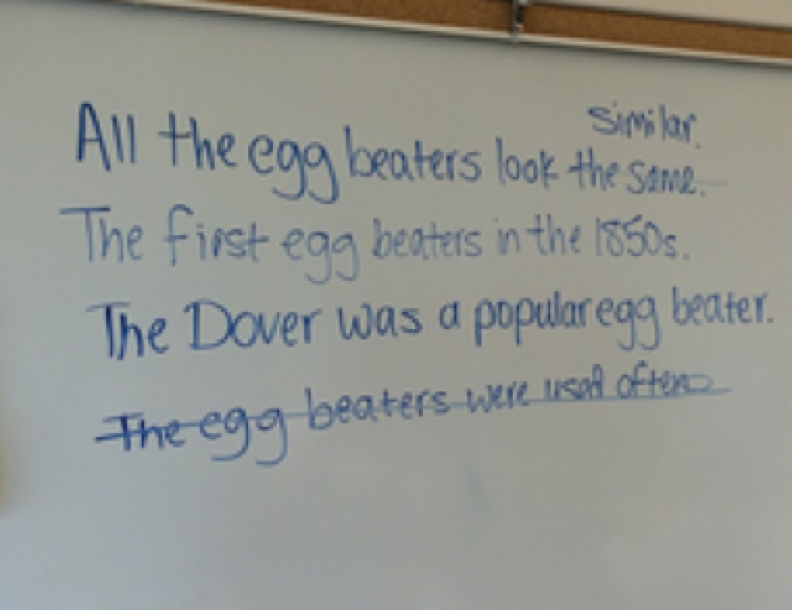 similar.
All the egg beaters look the same.
The first egg beaters in the 1850s.
The Dover was a popular egg beater.
The egg beaters were used often